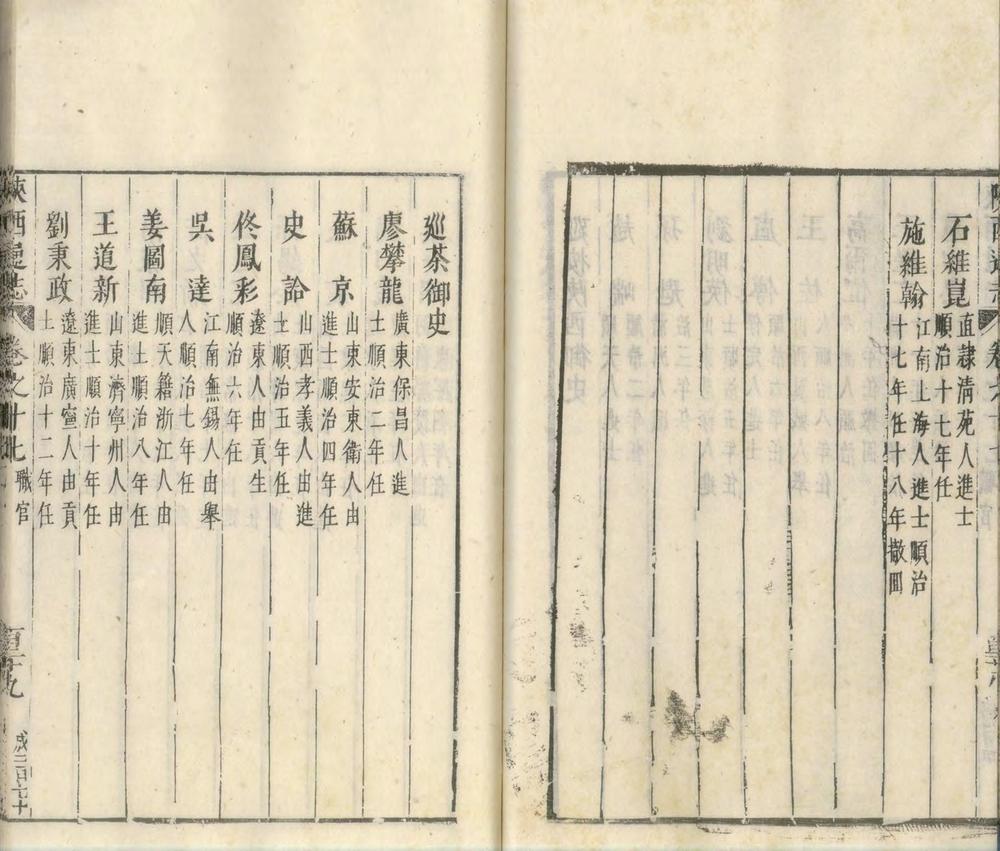 石維崑 直隸清苑人進士
順治十七年任
施維翰 江南上海人進士順治
十七年任十八年撤回
巡茶御史
廖攀龍 廣東保昌人進
士順治二年任
蘇京 山東安東衛人由
進士順治四年任
史詥 山西孝義人由進
士順治五年任
佟鳳彩 遼東人由貢生
順治六年任
吳達 江南無錫人由舉
人順治七年任
姜圖南 順天籍浙江人由
進士順治八年任
王道新 山東濟寧州人由
進士順治十年任
劉秉政 遼東廣寧人由貢
士順治十二年任
陝西通志 卷之十七 職官